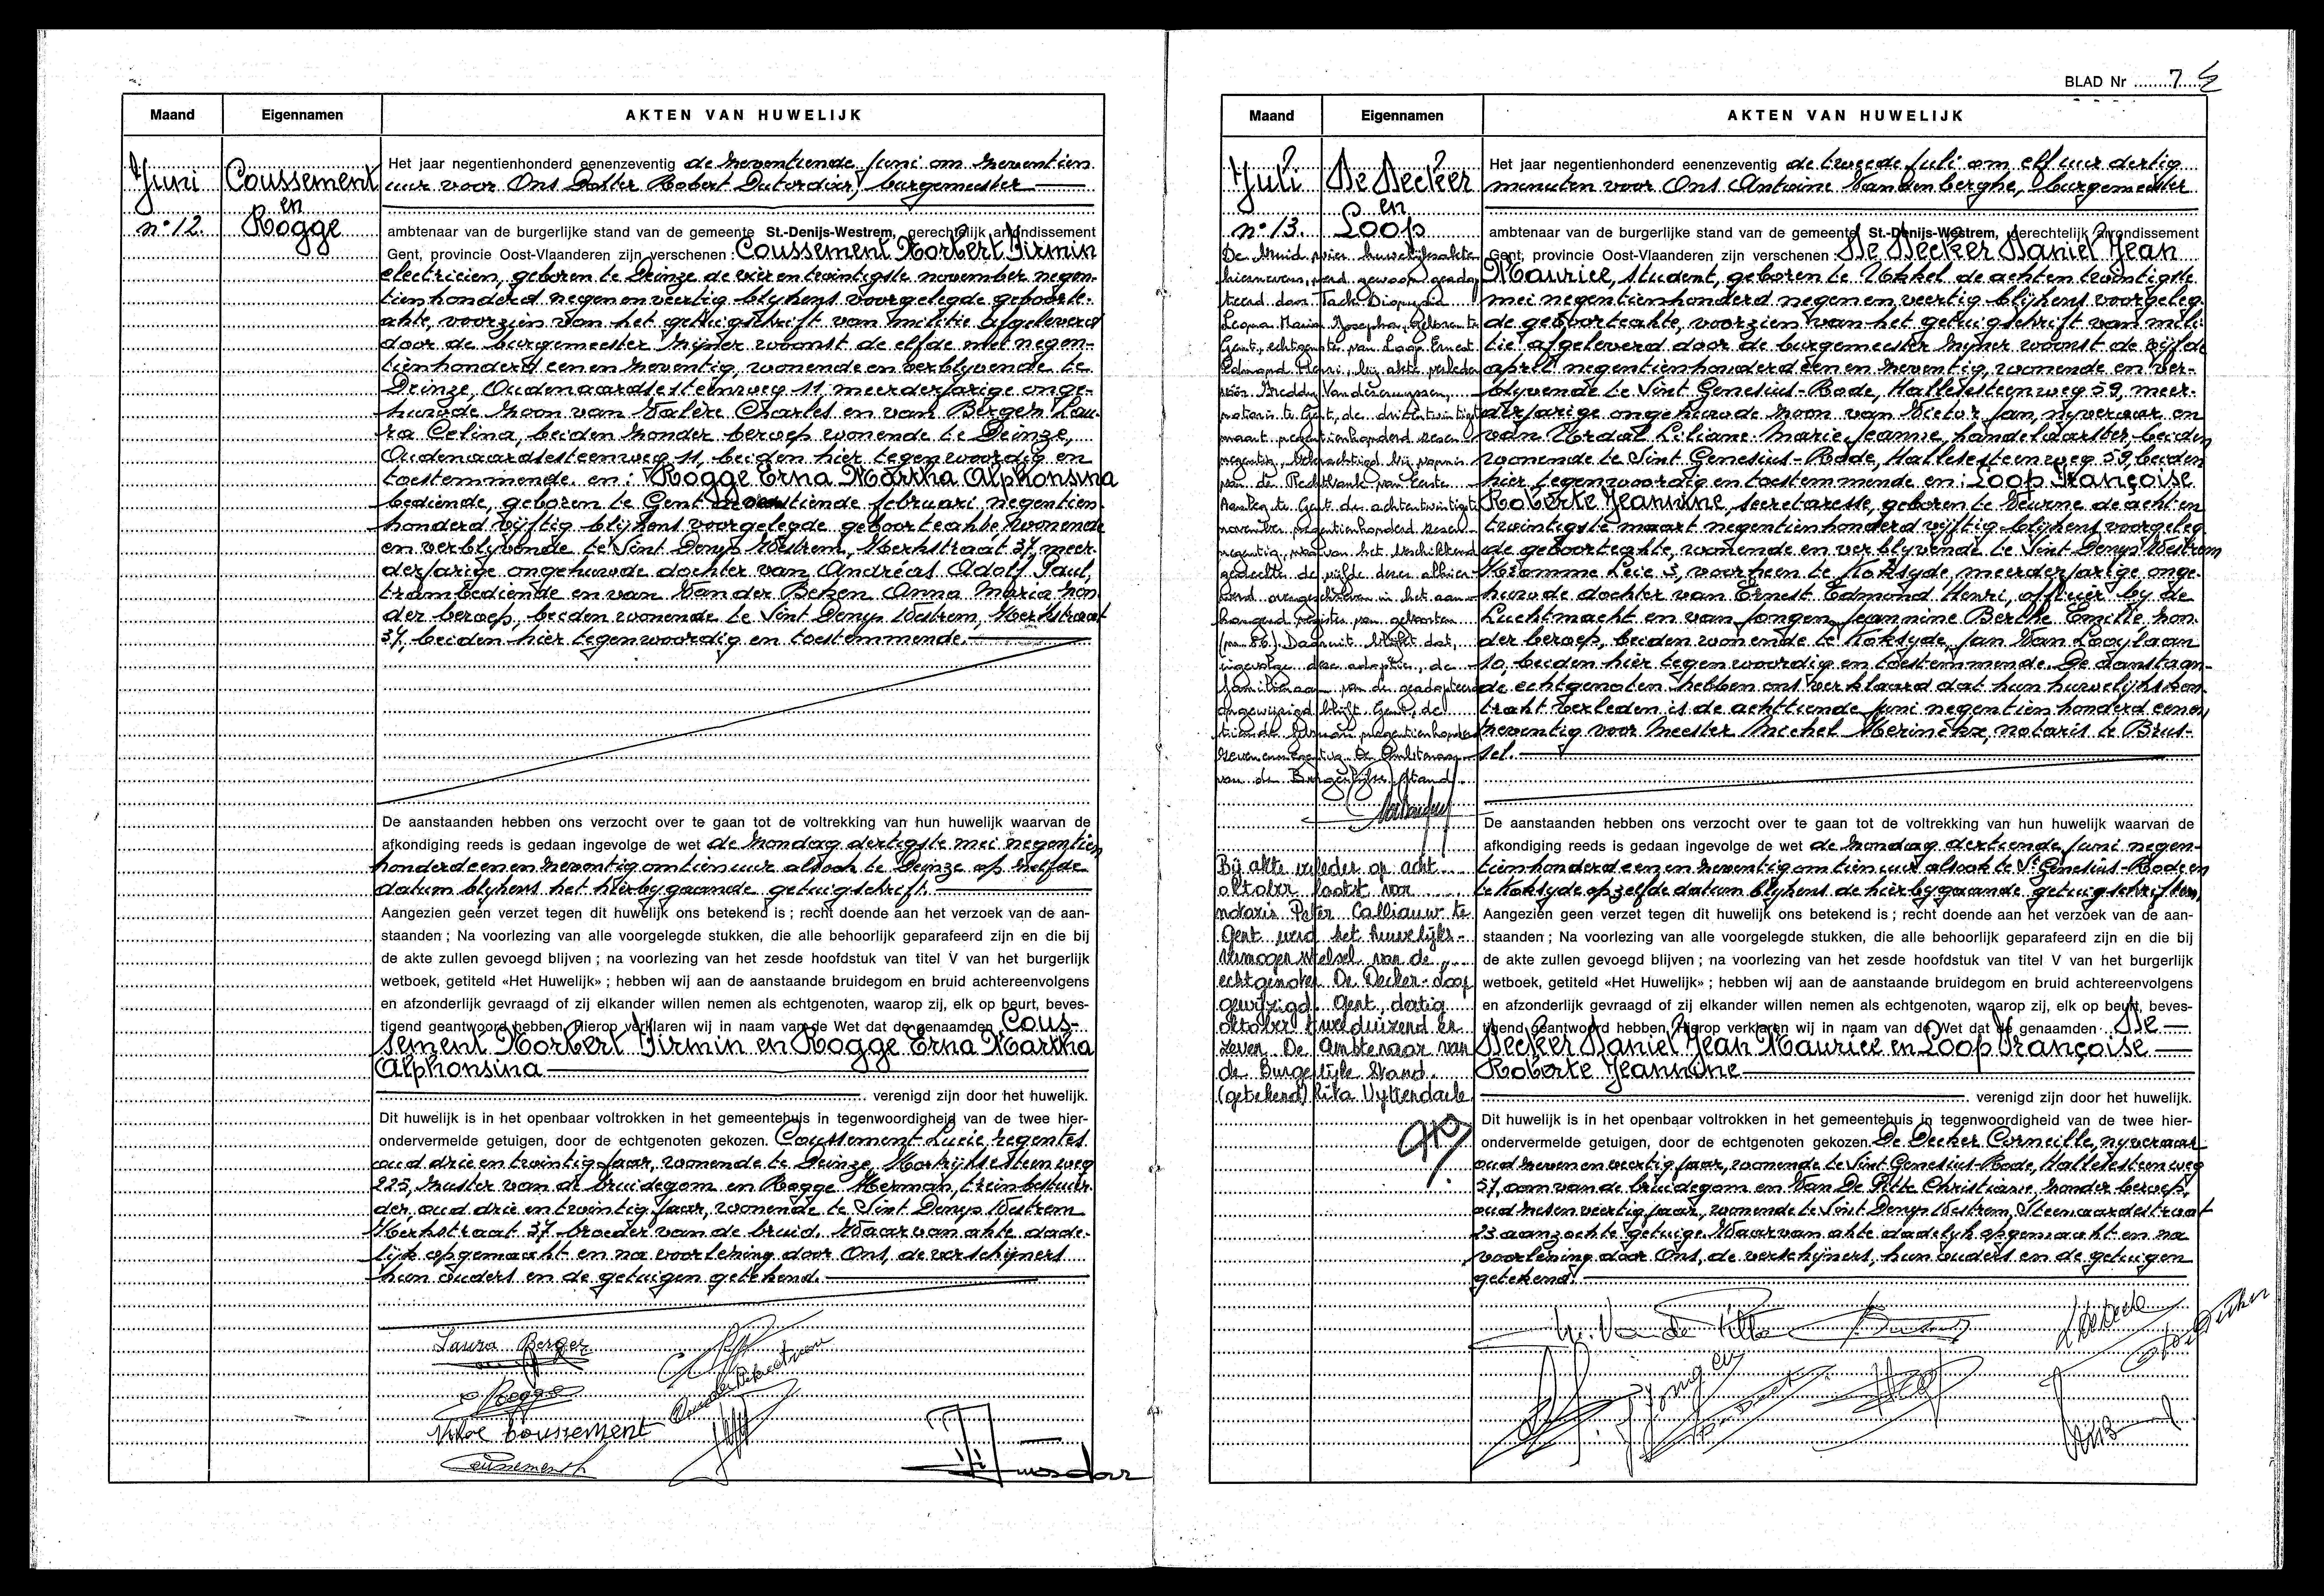 Maand
Eigennamen
AKTEN VAN HUWELIJK
Juni
n° 12.
Coussement
en
Rogge
Het jaar negentienhonderd eenenzeventig de zeventiende juni om zeventien
uur voor Ons Dokter Robert burgemeester
ambtenaar van de burgerlijke stand van de gemeente St.-Denijs-Westrem, gerechtelijk arrondissement
Gent, provincie Oost-Vlaanderen zijn verschenen : Coussement Norbert Firmin
electricien, geboren te Deinze de vierentwintigste november negen-
tienhonderd negenenveertig blijkens voorgelegde geboorte-
akte, voorzien van het getuigschrift van militie afgeleverd
door de burgemeester zijner woonst de elfde mei negen-
tienhonderd eenenzeventig, wonende en verblyvende te
Deinze, Oudenaardsesteenweg 11, meerderjarige onge-
huwde zoon van Valère Charles en van Berger Lau-
ra Celina, beiden zonder beroep wonende te Deinze,
Oudenaardsesteenweg 11, beiden hier tegenwoordig en
toestemmende en : Rogge Erna Martha Alphonsina
bediende, geboren te Gent februari negentien-
honderd vijftig blijkens voorgelegde geboorteakte, wonende
en verblyvende te Sint Denys Westrem, Kerkstraat 37, meer-
derjarige ongehuwde dochter van Andréas Adolf Paul,
trambediende en van Van der Betzen Anna Maria zon-
der beroep, beiden wonende te Sint Denys Westrem, Kerkstraat
37, beiden hier tegenwoordig en toestemmende.
De aanstaanden hebben ons verzocht over te gaan tot de voltrekking van hun huwelijk waarvan de
afkondiging reeds is gedaan ingevolge de wet de zondag dertigste mei negentien
honderdeenenzeventig om tien uur alsook te Deinze op zelfde
datum blijkens het hierbygaande getuigschrift.
Aangezien geen verzet tegen dit huwelijk ons betekend is ; recht doende aan het verzoek van de aan-
staanden ; Na voorlezing van alle voorgelegde stukken, die alle behoorlijk geparafeerd zijn en die bij
de akte zullen gevoegd blijven ; na voorlezing van het zesde hoofdstuk van titel V van het burgerlijk
wetboek, getiteld «Het Huwelijk» ; hebben wij aan de aanstaande bruidegom en bruid achtereenvolgens
en afzonderlijk gevraagd of zij elkander willen nemen als echtgenoten, waarop zij, elk op beurt, beves-
tigend geantwoord hebben. Hierop verklaren wij in naam van de Wet dat de genaamden Cous-
sement Norbert Firmin en Rogge Erna Martha
Alphonsina
verenigd zijn door het huwelijk.
Dit huwelijk is in het openbaar voltrokken in het gemeentehuis in tegenwoordigheid van de twee hier-
ondervermelde getuigen, door de echtgenoten gekozen. Coussement Lucie, regentes
oud drieentwintig jaar, wonende te Deinze, Kortrijksesteenweg
225, zuster van de bruidegom en Rogge Herman, treinbestuur-
der, oud drieentwintig jaar, wonende te Sint Denys Westrem
Kerkstraat 37 broeder van de bruid. Waarvan akte dade-
lijk opgemaakt en na voorlezing door Ons, de verschijners
hun ouders en de getuigen getekend.
Laura Berger
E Rogge
Valère Coussement
Coussement
BLAD Nr 7
Maand
Eigennamen
AKTEN VAN HUWELIJK
Juli
n° 13.
De Decker
en
Loop
De bruid vier huwelijksakte
hiernevens, werd gewoon geadop-
teerd door Tack Dionysia
Leona Maria Josepha, geboren te
Gent, echtgenote van Loop Ernest
Edmond Henri, bij akte verleden
vóór Freddy Vandercruyssen,
notaris te Gent, de drieentwintigste
maart negentienhonderd zesen-
negentig, bekrachtigd bij vonnis
van de Rechtbank van Eerste
Aanleg te Gent de achtentwintigste
november negentienhonderd zesen-
negentig, waarvan het beschikkend
gedeelte de vijfde dezer alhier
werd overgeschreven in het aan-
hangend register van geboorten
(nr 86). Daaruit blijkt dat,
ingevolge deze adoptie, de
familienaam van de geadopteerde
ongewijzigd blijft. Gent, de
tiende februari negentienhonderd
zevenennegentig. De Ambtenaar
van de Burgerlijke Stand
Bij akte verleden op acht
oktober laatst voor
notaris Peter Calliauw te
Gent werd het huwelijks-
vermogenstelsel van de
echtgenoten De Decker-Loop
gewijzigd. Gent, dertig
oktober tweeduizend en
zeven. De Ambtenaar van
de Burgerlijke Stand.
(getekend) Rita Uyttendaele
Het jaar negentienhonderd eenenzeventig de tweede juli om elf uur dertig
minuten voor Ons Antoine Vandenberghe, burgemeester
ambtenaar van de burgerlijke stand van de gemeente St.-Denijs-Westrem, gerechtelijk arrondissement
Gent, provincie Oost-Vlaanderen zijn verschenen : De Decker Daniel Jean
Maurice, student, geboren te Ukkel de achtentwintigste
mei negentienhonderd negenenveertig blijkens voorgeleg-
de geboorteakte, voorzien van het getuigschrift van mili-
tie afgeleverd door de burgemeester zijner woonst de vijfde
april negentienhonderd eenenzeventig, wonende en ver-
blyvende te Sint Genesius-Rode, Hallesesteenweg 59, meer-
derjarige ongehuwde zoon van Victor Jan, nyveraar en
van Liliane Marie Jeanne, handelaarster, beiden
wonende te Sint Genesius-Rode, Hallesesteenweg 59, beiden
hier tegenwoordig en toestemmende en : Loop Françoise
Roberte Jeannine, secretaresse, geboren te Veurne de achten-
twintigste maart negentienhonderd vijftig blijkens voorgeleg-
de geboorteakte, wonende en verblyvende te Sint Denys Westrem
Kromme Leie 3, voorheen te Koksyde, meerderjarige onge-
huwde dochter van Ernest Edmond Henri, officier by de
Luchtmacht en van Jongen Jeannine Berthe Emilie zon-
der beroep, beiden wonende te Koksyde, Jan Van Looylaan
10, beiden hier tegenwoordig en toestemmende. De aanstaan-
de echtgenoten hebben ons verklaard dat hun huwelijkskon-
trakt verleden is de achttiende juni negentienhonderd eenen-
zeventig voor Meester Michel notaris te Brus-
sel.
De aanstaanden hebben ons verzocht over te gaan tot de voltrekking van hun huwelijk waarvan de
afkondiging reeds is gedaan ingevolge de wet de zondag dertiende juni negen-
tienhonderd eenenzeventig om tien uur alsook te St Genesius-Rode en
te Koksyde op zelfde datum blijkens de hierbygaande getuigschriften.
Aangezien geen verzet tegen dit huwelijk ons betekend is ; recht doende aan het verzoek van de aan-
staanden ; Na voorlezing van alle voorgelegde stukken, die alle behoorlijk geparafeerd zijn en die bij
de akte zullen gevoegd blijven ; na voorlezing van het zesde hoofdstuk van titel V van het burgerlijk
wetboek, getiteld «Het Huwelijk» ; hebben wij aan de aanstaande bruidegom en bruid achtereenvolgens
en afzonderlijk gevraagd of zij elkander willen nemen als echtgenoten, waarop zij, elk op beurt, beves-
tigend geantwoord hebben. Hierop verklaren wij in naam van de Wet dat de genaamden De
Decker Daniel Jean Maurice en Loop Françoise
Roberte Jeannine
verenigd zijn door het huwelijk.
Dit huwelijk is in het openbaar voltrokken in het gemeentehuis in tegenwoordigheid van de twee hier-
ondervermelde getuigen, door de echtgenoten gekozen. De Decker Corneille, nyveraar
oud zevenenveertig jaar, wonende te Sint Genesius-Rode, Hallesesteenweg
57, oom van de bruidegom en Van De Putte Christiane, zonder beroep,
oud zesenveertig jaar, wonende te Sint Denys Westrem, Steenaardestraat
23 aanzochte getuige. Waarvan akte dadelyk opgemaakt en na
voorlezing door Ons, de verschijners, hun ouders en de getuigen
getekend.